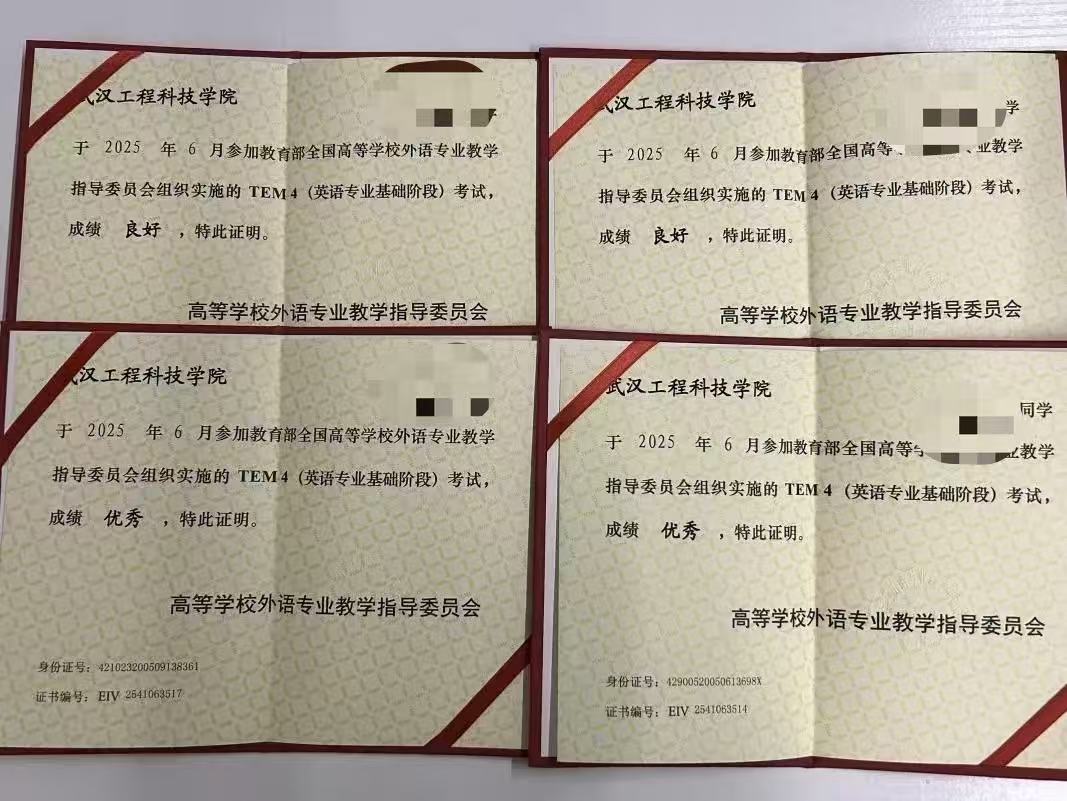 武汉工程科技学院
于 2025 年 6 月参加教育部全国高等学校外语专业教学
指导委员会组织实施的 TEM 4（英语专业基础阶段）考试，
成绩 良好 ，特此证明。
高等学校外语专业教学指导委员会
武汉工程科技学院
学
于 2025 年 6 月参加教育部全国高等 业教学
指导委员会组织实施的 TEM 4（英语专业基础阶段）考试，
成绩 良好 ，特此证明。
高等学校外语专业教学指导委员会
武汉工程科技学院
于 2025 年 6 月参加教育部全国高等学校外语专业教学
指导委员会组织实施的 TEM 4（英语专业基础阶段）考试，
成绩 优秀 ，特此证明。
高等学校外语专业教学指导委员会
身份证号：421023200509138361
证书编号：EIV 2541063517
武汉工程科技学院
同学
于 2025 年 6 月参加教育部全国高等 业教学
指导委员会组织实施的 TEM 4（英语专业基础阶段）考试，
成绩 优秀 ，特此证明。
高等学校外语专业教学指导委员会
身份证号：42900520050613698X
证书编号：EIV 2541063514